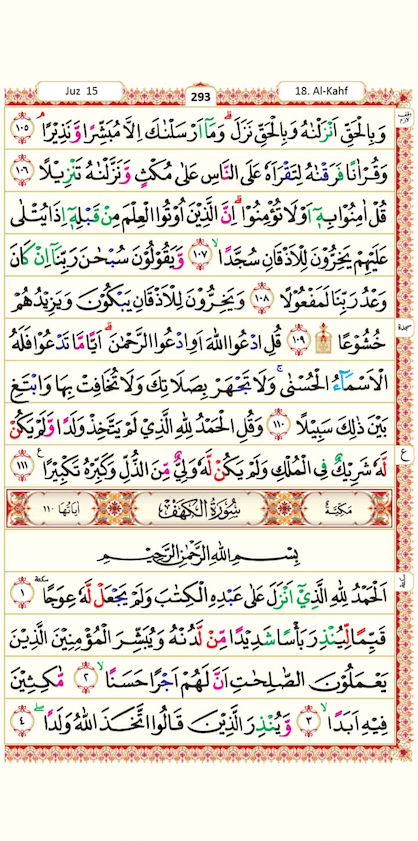 Juz 15
293
18. Al-Kahf
وَبِالْحَقِّ اَنْزَلْنٰهُ وَبِالْحَقِّ نَزَلَ ۗ وَمَآ اَرْسَلْنٰكَ اِلَّا مُبَشِّرًا وَّنَذِيْرًا ۘ ١٠٥
وَقُرْاٰنًا فَرَقْنٰهُ لِتَقْرَاَهٗ عَلَى النَّاسِ عَلٰى مُكْثٍ وَّنَزَّلْنٰهُ تَنْزِيْلًا ١٠٦
قُلْ اٰمِنُوْا بِهٖٓ اَوْ لَا تُؤْمِنُوْا ۗ اِنَّ الَّذِيْنَ اُوْتُوا الْعِلْمَ مِنْ قَبْلِهٖٓ اِذَا يُتْلٰى
عَلَيْهِمْ يَخِرُّوْنَ لِلْاَذْقَانِ سُجَّدًا ۙ ١٠٧ وَّيَقُوْلُوْنَ سُبْحٰنَ رَبِّنَآ اِنْ كَانَ
وَعْدُ رَبِّنَا لَمَفْعُوْلًا ١٠٨ وَيَخِرُّوْنَ لِلْاَذْقَانِ يَبْكُوْنَ وَيَزِيْدُهُمْ
خُشُوْعًا ۩ ١٠٩ قُلِ ادْعُوا اللّٰهَ اَوِ ادْعُوا الرَّحْمٰنَ ۗ اَيًّا مَّا تَدْعُوْا فَلَهُ
الْاَسْمَآءُ الْحُسْنٰى ۚ وَلَا تَجْهَرْ بِصَلَاتِكَ وَلَا تُخَافِتْ بِهَا وَابْتَغِ
بَيْنَ ذٰلِكَ سَبِيْلًا ١١٠ وَقُلِ الْحَمْدُ لِلّٰهِ الَّذِيْ لَمْ يَتَّخِذْ وَلَدًا وَّلَمْ يَكُنْ
لَّهٗ شَرِيْكٌ فِى الْمُلْكِ وَلَمْ يَكُنْ لَّهٗ وَلِيٌّ مِّنَ الذُّلِّ وَكَبِّرْهُ تَكْبِيْرًا ࣖ ١١١
مَكِيَّةٌ سُوْرَةُ الْكَهْفِ اٰيَاتُهَا ١١٠
بِسْمِ اللّٰهِ الرَّحْمٰنِ الرَّحِيْمِ
اَلْحَمْدُ لِلّٰهِ الَّذِيْٓ اَنْزَلَ عَلٰى عَبْدِهِ الْكِتٰبَ وَلَمْ يَجْعَلْ لَّهٗ عِوَجًا سكتة ١
قَيِّمًا لِّيُنْذِرَ بَأْسًا شَدِيْدًا مِّنْ لَّدُنْهُ وَيُبَشِّرَ الْمُؤْمِنِيْنَ الَّذِيْنَ
يَعْمَلُوْنَ الصّٰلِحٰتِ اَنَّ لَهُمْ اَجْرًا حَسَنًا ۙ ٢ مّٰكِثِيْنَ
فِيْهِ اَبَدًا ۙ ٣ وَّيُنْذِرَ الَّذِيْنَ قَالُوا اتَّخَذَ اللّٰهُ وَلَدًا ۖ ٤
سجدة
ع
سكتة